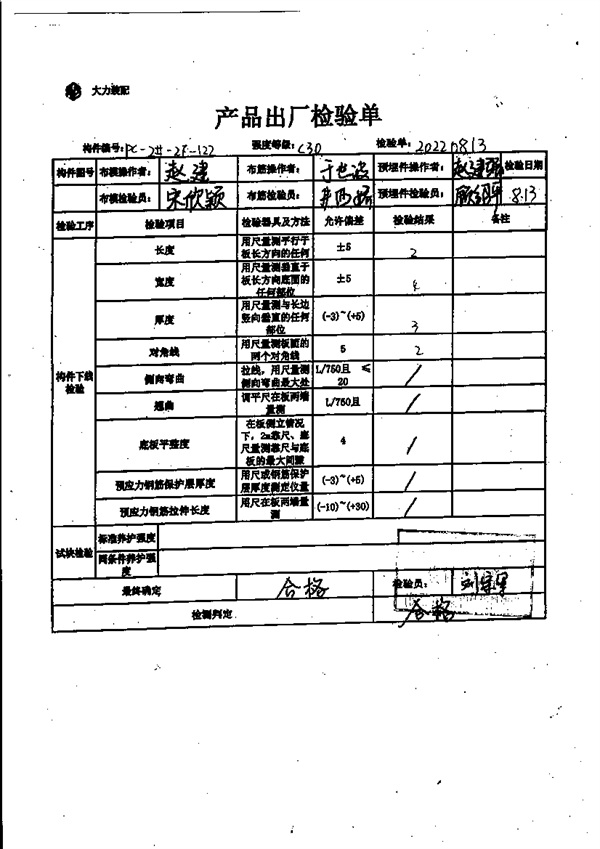 大力装配
产品出厂检验单
构件编号:PC-2#-2F-122 强度等级:C30 检验单:20220813
构件图号 布模操作者: 赵建 布筋操作者: 预埋件操作者: 赵建强 检验日期
布模检验员: 宋欣颖 布筋检验员: 预埋件检验员: 8.13
检验工序 检验项目 检验器具及方法 允许偏差 检验结果 备注
构件下线检验
长度 用尺量测平行于板长方向的任何 ±5 2
宽度 用尺量测垂直于板长方向底面的任何部位 ±5 4
厚度 用尺量测与长边竖向垂直的任何部位 (-3)~(+5) 3
对角线 用尺量测板面的两个对角线 5 2
侧向弯曲 拉线,用尺量测侧向弯曲最大处 L/750且 ≤20 /
翘曲 调平尺在板两端量测 L/750且 /
底板平整度 在板侧立情况下,2m靠尺、塞尺量测靠尺与底板的最大间隙 4 /
预应力钢筋保护层厚度 用尺或钢筋保护层厚度测定仪量 (-3)~(+5) /
预应力钢筋拉伸长度 用尺在板两端量测 (-10)~(+30) /
试块检验 标准养护强度
同条件养护强度
最终确定 合格 检验员:
检测判定 合格